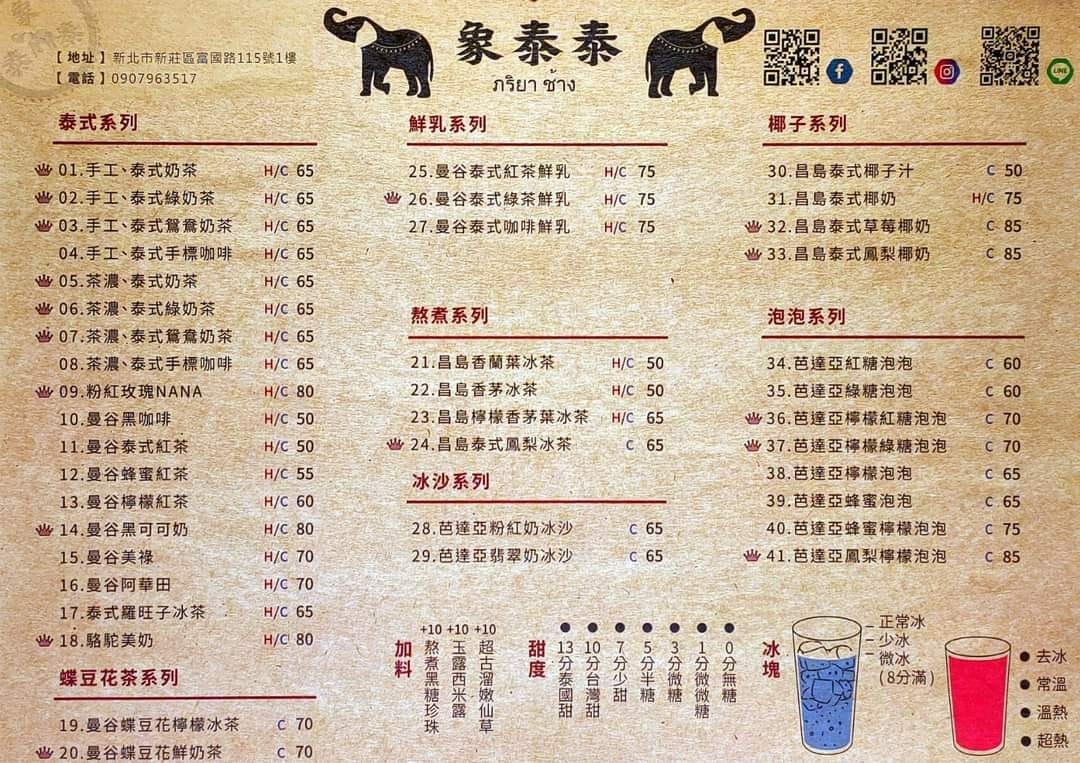 【 地址 】 新北市新莊區富國路115號1樓
【 電話 】 0907963517
象泰泰
ภริยา ช้าง
LINE
泰式系列
01.手工、泰式奶茶 H/C 65
02.手工、泰式綠奶茶 H/C 65
03.手工、泰式鴛鴦奶茶 H/C 65
04.手工、泰式手標咖啡 H/C 65
05.茶濃、泰式奶茶 H/C 65
06.茶濃、泰式綠奶茶 H/C 65
07.茶濃、泰式鴛鴦奶茶 H/C 65
08.茶濃、泰式手標咖啡 H/C 65
09.粉紅玫瑰NANA H/C 80
10.曼谷黑咖啡 H/C 50
11.曼谷泰式紅茶 H/C 50
12.曼谷蜂蜜紅茶 H/C 55
13.曼谷檸檬紅茶 H/C 60
14.曼谷黑可可奶 H/C 80
15.曼谷美祿 H/C 70
16.曼谷阿華田 H/C 70
17.泰式羅旺子冰茶 H/C 65
18.駱駝美奶 H/C 80
蝶豆花茶系列
19.曼谷蝶豆花檸檬冰茶 C 70
20.曼谷蝶豆花鮮奶茶 C 70
鮮乳系列
25.曼谷泰式紅茶鮮乳 H/C 75
26.曼谷泰式綠茶鮮乳 H/C 75
27.曼谷泰式咖啡鮮乳 H/C 75
熬煮系列
21.昌島香蘭葉冰茶 H/C 50
22.昌島香茅冰茶 H/C 50
23.昌島檸檬香茅葉冰茶 H/C 65
24.昌島泰式鳳梨冰茶 C 65
冰沙系列
28.芭達亞粉紅奶冰沙 C 65
29.芭達亞翡翠奶冰沙 C 65
椰子系列
30.昌島泰式椰子汁 C 50
31.昌島泰式椰奶 H/C 75
32.昌島泰式草莓椰奶 C 85
33.昌島泰式鳳梨椰奶 C 85
泡泡系列
34.芭達亞紅糖泡泡 C 60
35.芭達亞綠糖泡泡 C 60
36.芭達亞檸檬紅糖泡泡 C 70
37.芭達亞檸檬綠糖泡泡 C 70
38.芭達亞檸檬泡泡 C 65
39.芭達亞蜂蜜泡泡 C 65
40.芭達亞蜂蜜檸檬泡泡 C 75
41.芭達亞鳳梨檸檬泡泡 C 85
加料
+10 熬煮黑糖珍珠
+10 玉露西米露
+10 超古溜嫩仙草
甜度
13分泰國甜
10分台灣甜
7分少甜
5分半糖
3分微糖
1分微微糖
0分無糖
冰塊
正常冰
少冰
微冰
(8分滿)
● 去冰
● 常溫
● 溫熱
● 超熱